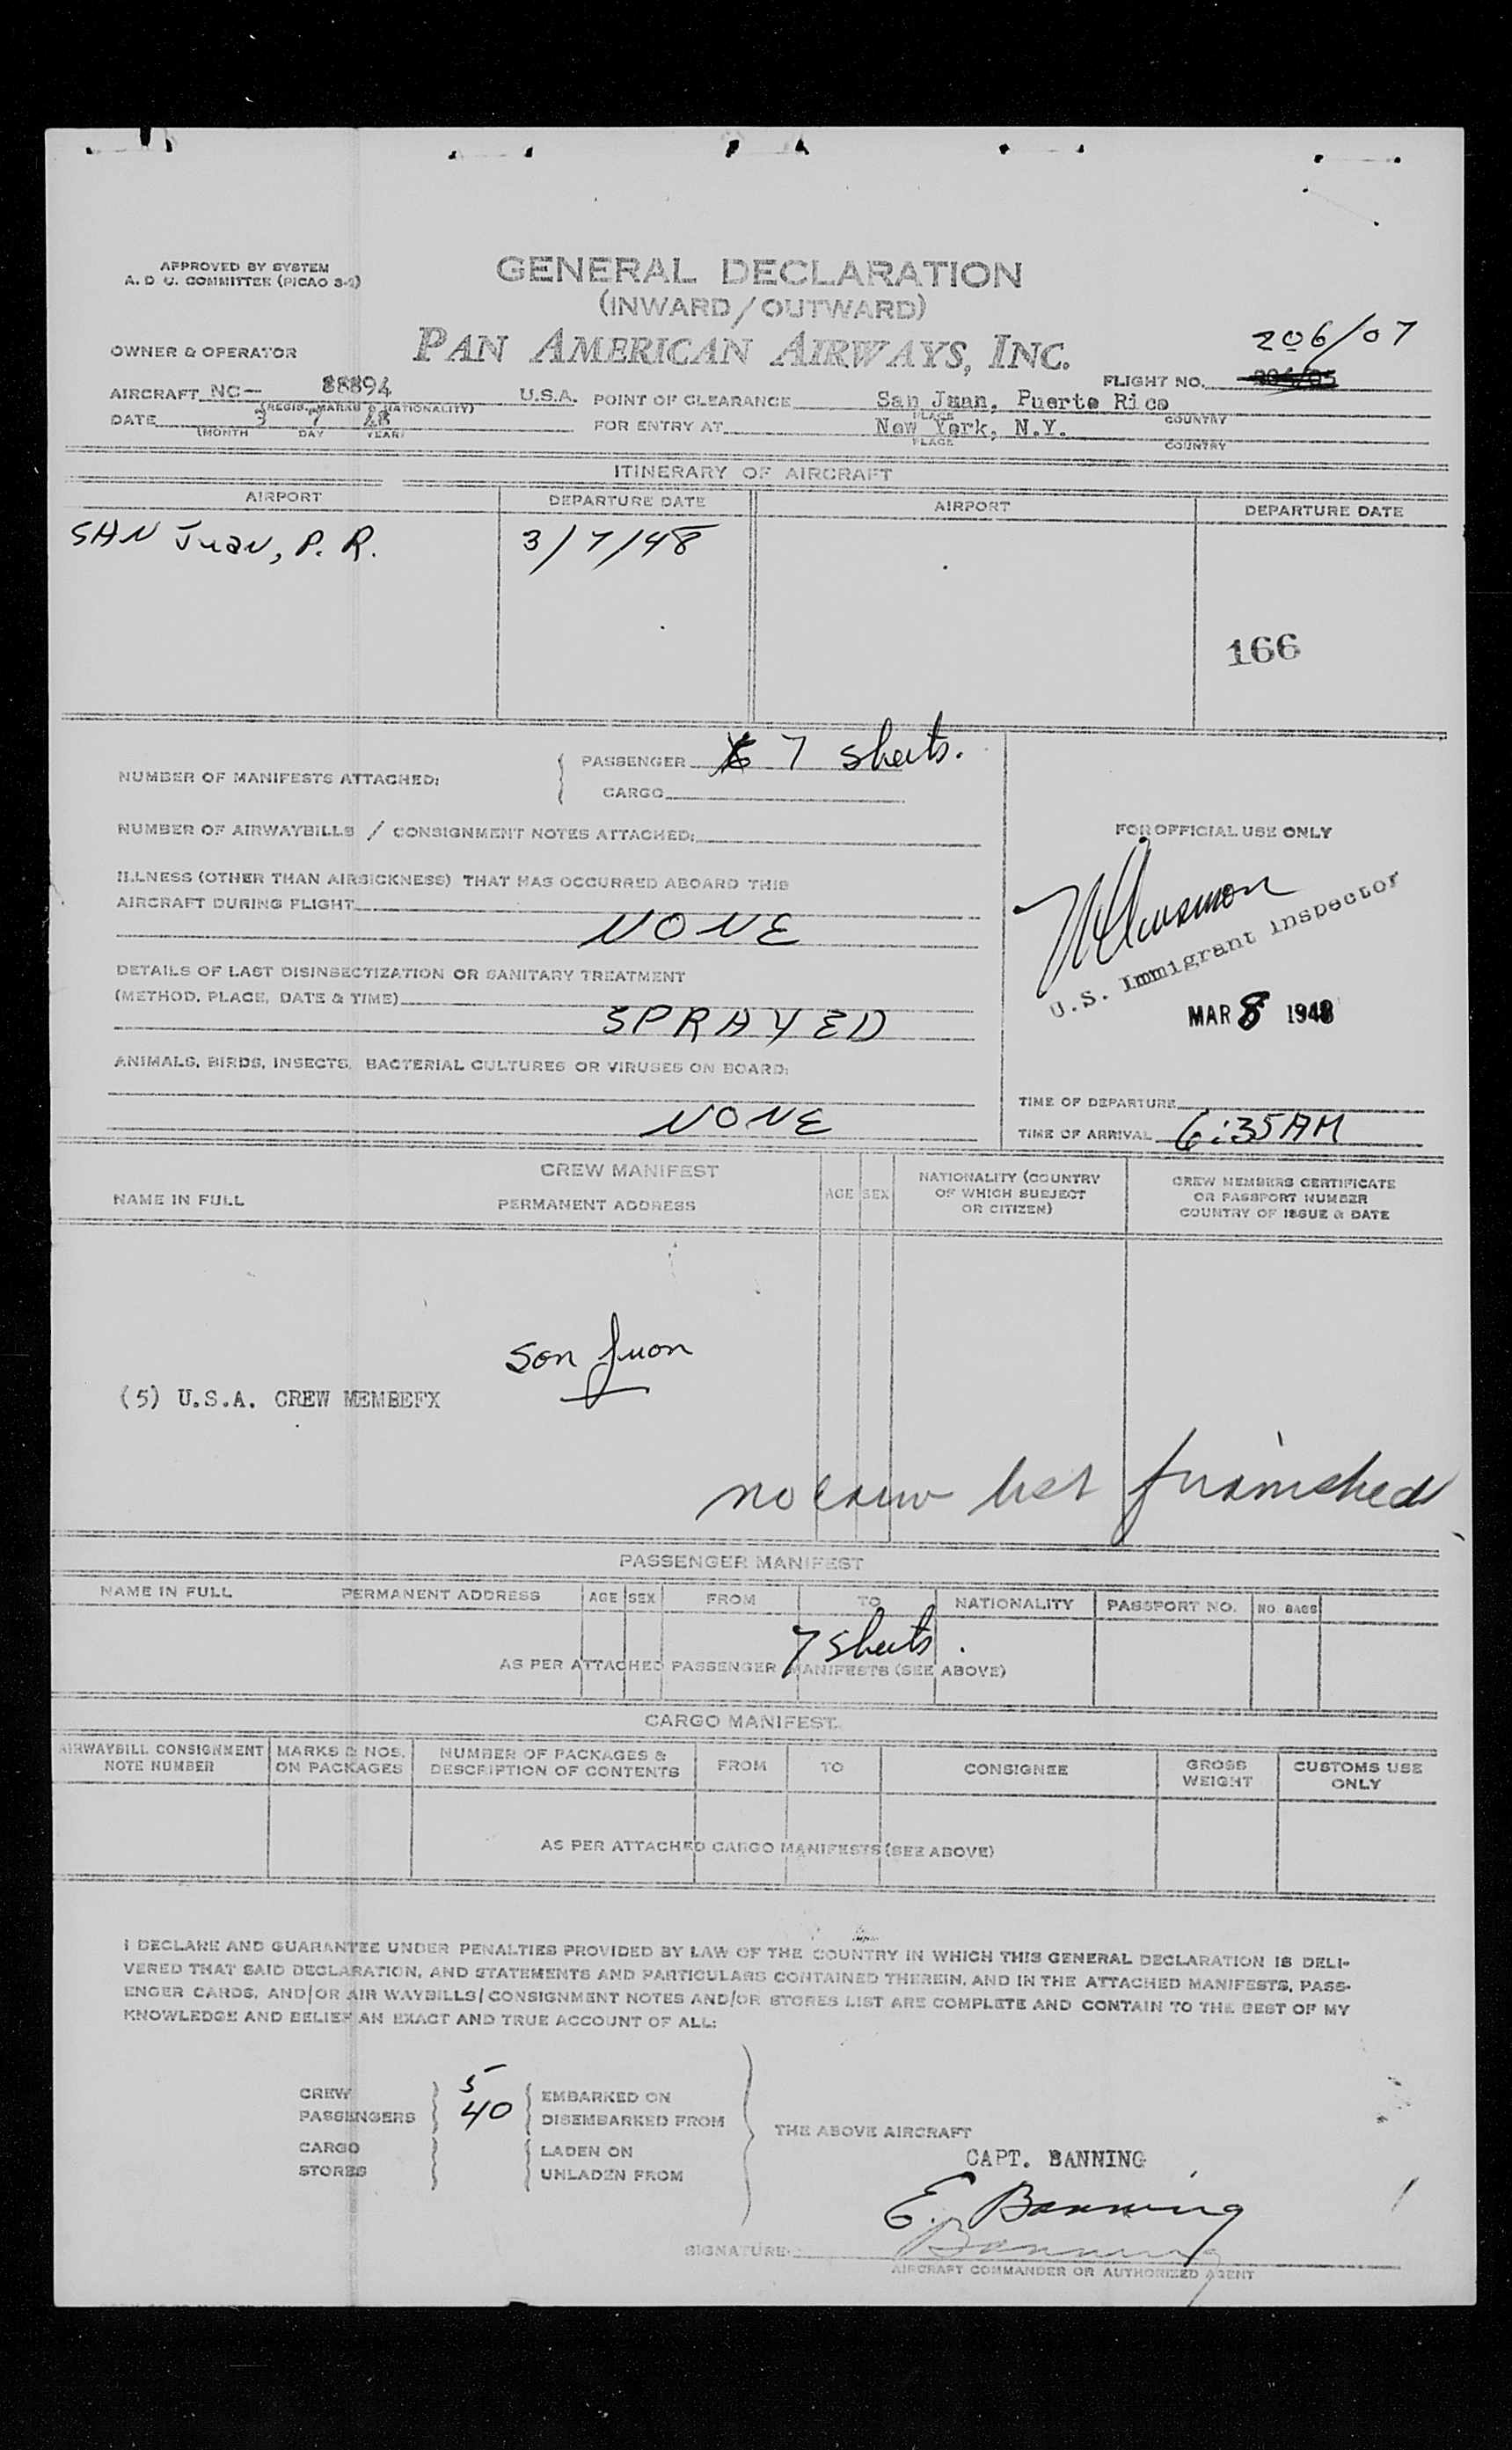 APPROVED BY SYSTEM
A. D C. COMMITTEE (PICAO 3-2)
GENERAL DECLARATION
(INWARD/OUTWARD)
PAN AMERICAN AIRWAYS, INC.
206/07
OWNER & OPERATOR
FLIGHT NO.
AIRCRAFT NC- 88894 U.S.A.
(REGIS. MARKS & NATIONALITY)
POINT OF CLEARANCE San Juan, Puerto Rico
PLACE COUNTRY
DATE 3 7 48
(MONTH DAY YEAR)
FOR ENTRY AT New York, N.Y.
PLACE COUNTRY
ITINERARY OF AIRCRAFT
AIRPORT DEPARTURE DATE AIRPORT DEPARTURE DATE
SAN Juan, P. R. 3/7/48
166
NUMBER OF MANIFESTS ATTACHED:
PASSENGER 7 sheets.
CARGO
NUMBER OF AIRWAYBILLS / CONSIGNMENT NOTES ATTACHED:
FOR OFFICIAL USE ONLY
ILLNESS (OTHER THAN AIRSICKNESS) THAT HAS OCCURRED ABOARD THIS
AIRCRAFT DURING FLIGHT
NONE
U.S. Immigrant Inspector
DETAILS OF LAST DISINSECTIZATION OR SANITARY TREATMENT
(METHOD, PLACE, DATE & TIME)
SPRAYED
MAR 8 1948
ANIMALS, BIRDS, INSECTS, BACTERIAL CULTURES OR VIRUSES ON BOARD:
NONE
TIME OF DEPARTURE
TIME OF ARRIVAL 6:35 AM
CREW MANIFEST
NAME IN FULL PERMANENT ADDRESS AGE SEX
NATIONALITY (COUNTRY
OF WHICH SUBJECT
OR CITIZEN)
CREW MEMBERS CERTIFICATE
OR PASSPORT NUMBER
COUNTRY OF ISSUE & DATE
San Juan
(5) U.S.A. CREW MEMBEFX
no crew list furnished
PASSENGER MANIFEST
NAME IN FULL PERMANENT ADDRESS AGE SEX FROM TO NATIONALITY PASSPORT NO. NO. BAGS
7 sheets.
AS PER ATTACHED PASSENGER MANIFESTS (SEE ABOVE)
CARGO MANIFEST.
AIRWAYBILL CONSIGNMENT
NOTE NUMBER
MARKS & NOS.
ON PACKAGES
NUMBER OF PACKAGES &
DESCRIPTION OF CONTENTS
FROM TO CONSIGNEE
GROSS
WEIGHT
CUSTOMS USE
ONLY
AS PER ATTACHED CARGO MANIFESTS (SEE ABOVE)
I DECLARE AND GUARANTEE UNDER PENALTIES PROVIDED BY LAW OF THE COUNTRY IN WHICH THIS GENERAL DECLARATION IS DELI-
VERED THAT SAID DECLARATION, AND STATEMENTS AND PARTICULARS CONTAINED THEREIN, AND IN THE ATTACHED MANIFESTS, PASS-
ENGER CARDS, AND/OR AIR WAYBILLS/CONSIGNMENT NOTES AND/OR STORES LIST ARE COMPLETE AND CONTAIN TO THE BEST OF MY
KNOWLEDGE AND BELIEF AN EXACT AND TRUE ACCOUNT OF ALL:
CREW 5 EMBARKED ON
PASSENGERS 40 DISEMBARKED FROM
THE ABOVE AIRCRAFT
CARGO LADEN ON
STORES UNLADEN FROM
CAPT. BANNING
E. Banning
Banning
SIGNATURE:
AIRCRAFT COMMANDER OR AUTHORIZED AGENT